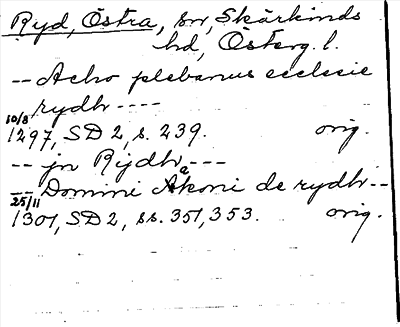 Ryd, Östra, sn, Skärkinds
hd, Österg. l.
-- Acho plebanus ecclesie
rydh ----
10/8
1297, SD 2, s. 239. orig.
-- jn Rijdh ---
-- Domini Akoni de rydh --
25/11
1301, SD 2, ss. 351, 353. orig.